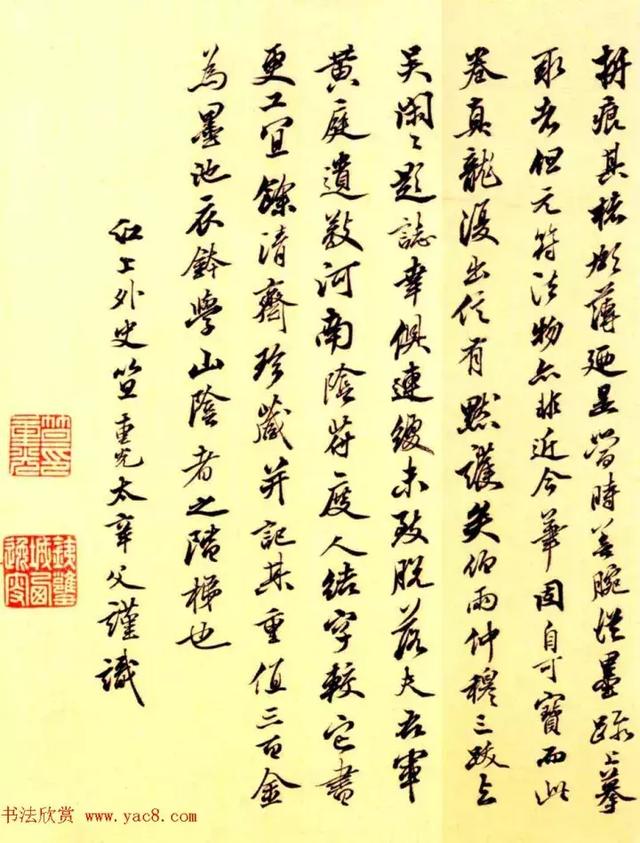 痕其榻頗薄廼是當時善腕從墨跡上摹
取者但元符法物亦非近今華固自可寶而此
卷真龍復出有默護矣伯雨仲穆三跋与
吳閑〻題誌幸俱連綴未致脫落夫右軍
黃庭遺教河南陰符度人結字較它書
更工宜餘清齋珍藏并記其重值三百金
為墨池衣鉢學山陰者之階梯也
江上外史笪重光太辛父謹識
笪重光印
書法欣赏 www.yac8.com